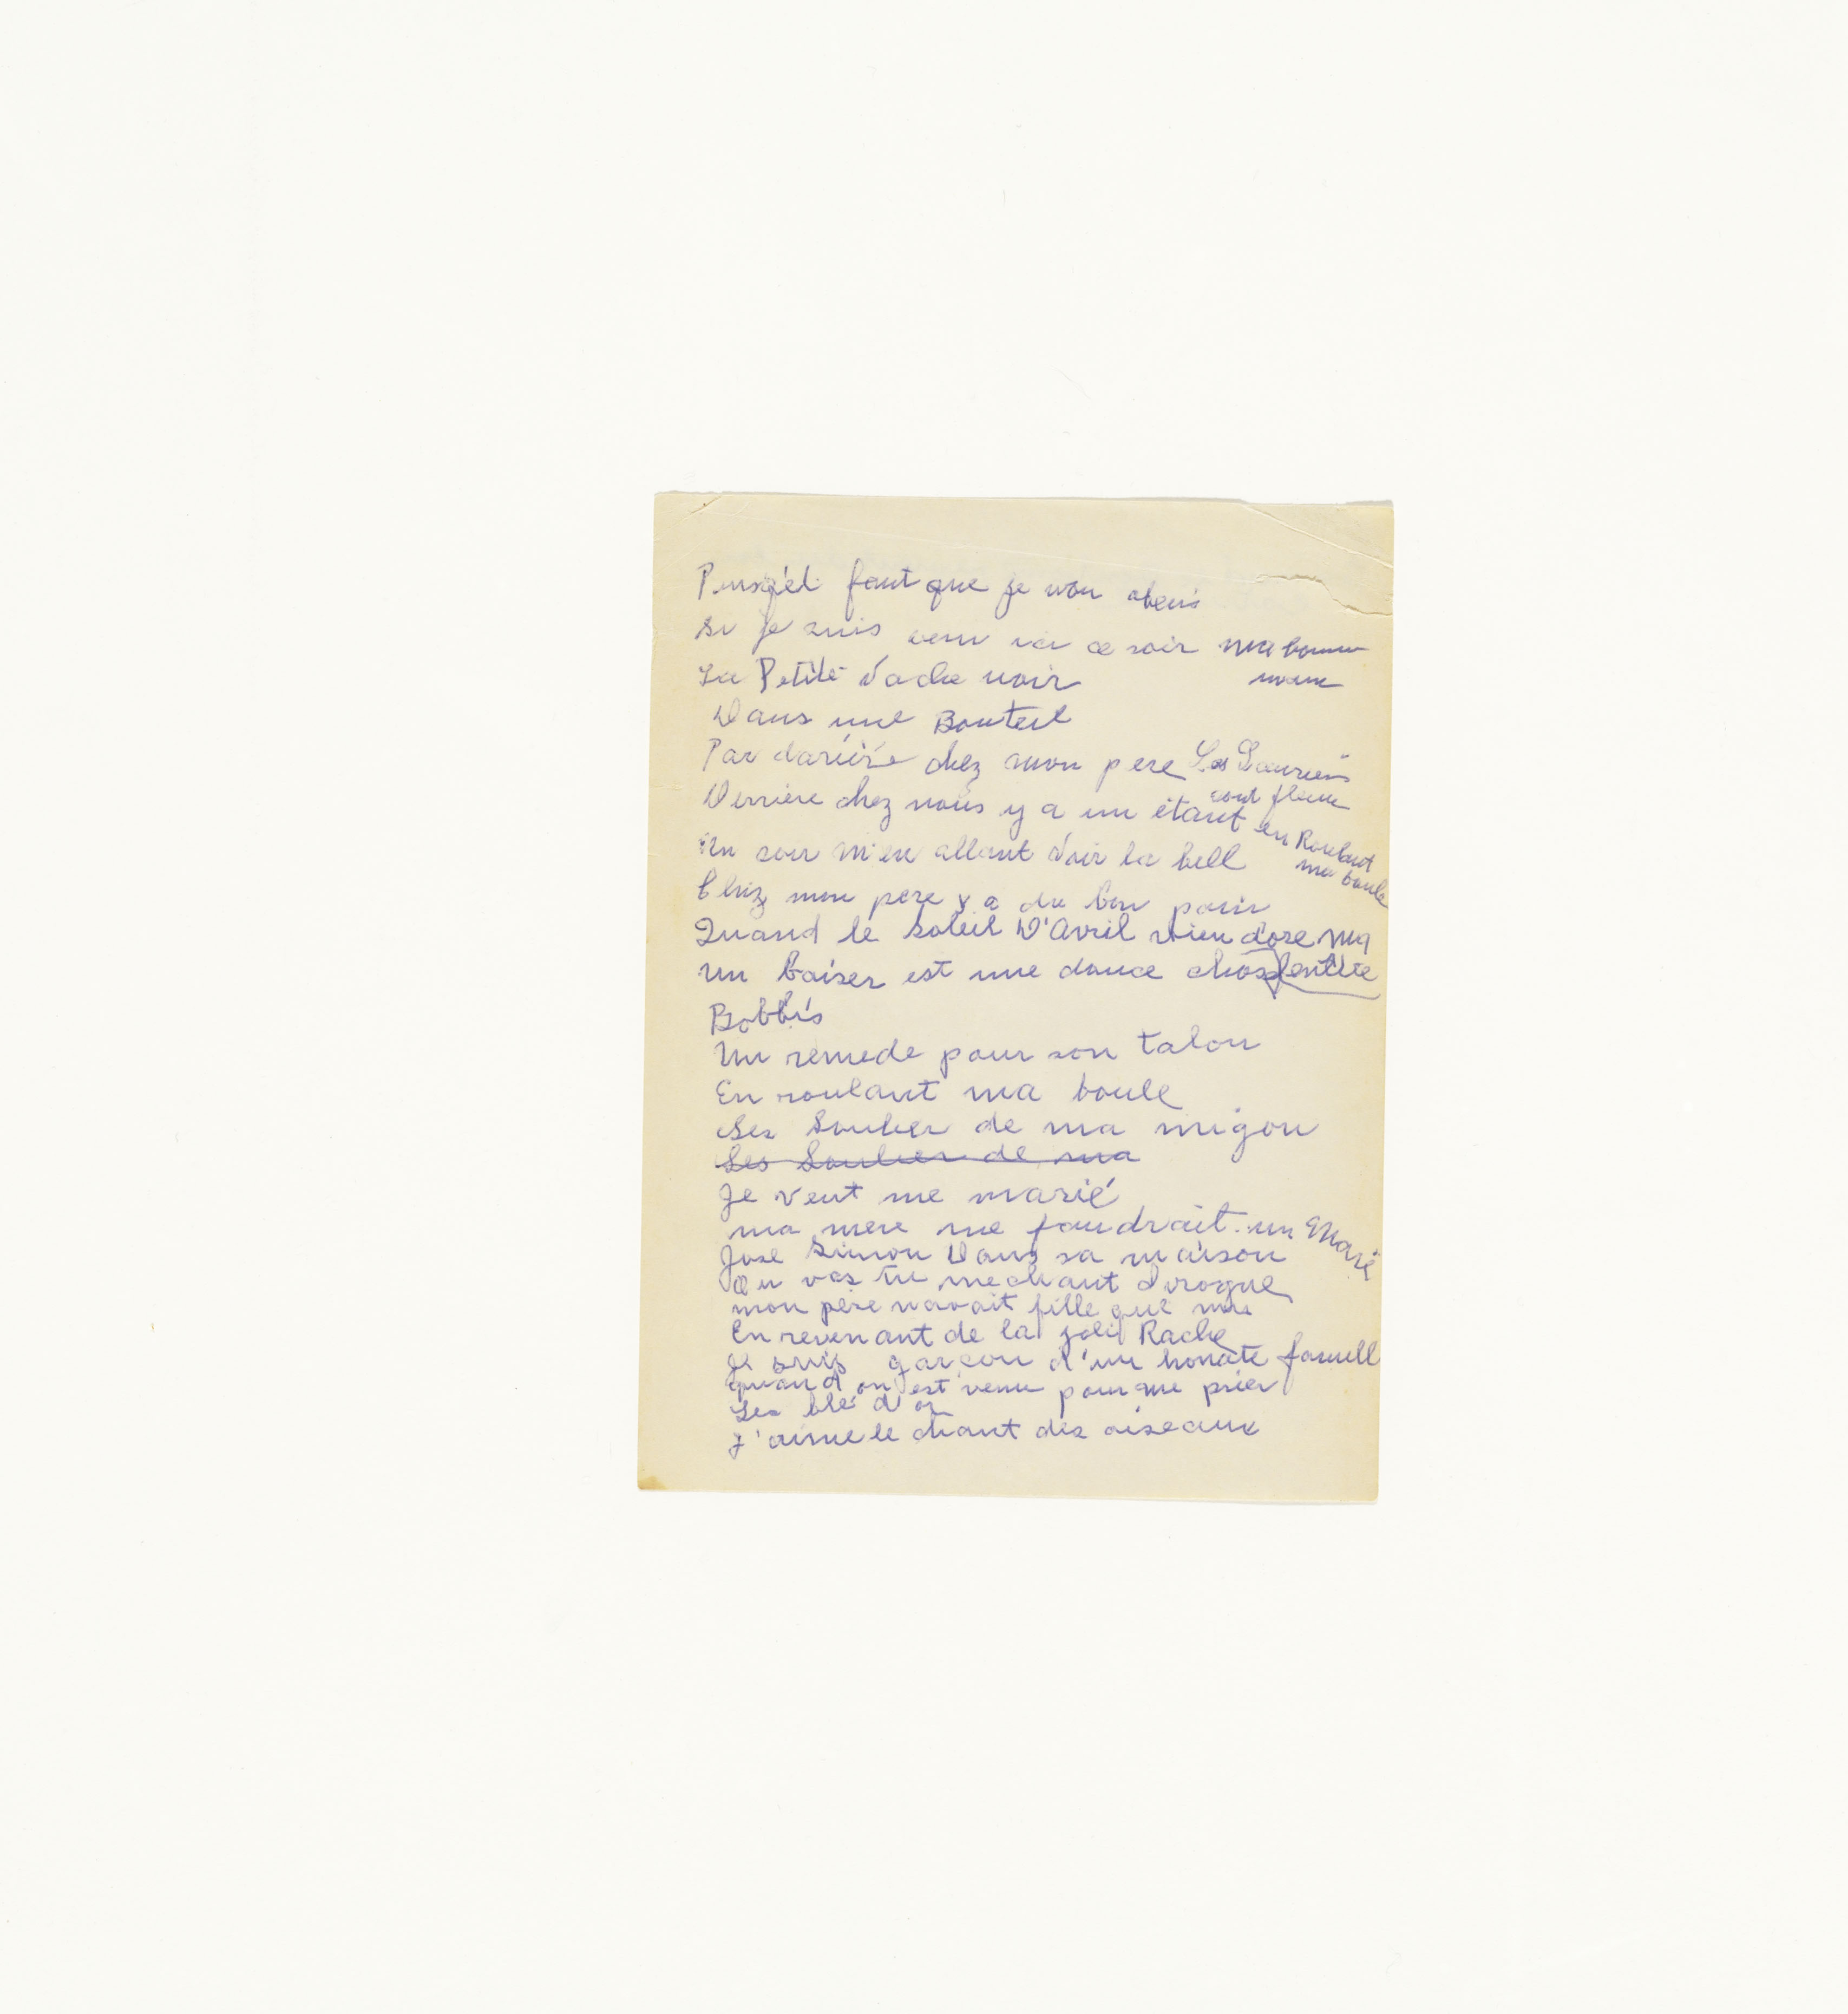 faut que je vou obeis
si je suis venu ici ce soir ma bonne
La Petite Vache noir
Dans une Bouteil
Par dariére chez mon pere Les Lauriers
sont fleuri
Derriere chez nous y a un étant en Roulant
ma boule
Un soir m'en allant Voir la bell
Chez mon pere y a du bon
Quand le soleil D'Avril vien dore ma
fentete
un baiser est une douce chose
Bobbis
Un remede pour son talon
En roulant ma boule
Les Soulier de ma migon
Les Soulier de ma
Je veut me marié
ma mere me faudrait un Marie
Jose Simon Dans sa maison
Ou vas tu mechant ivrogne
mon père navait fille que moi
En revenant de la joli Rochelle
Je suis garçon d'un honête famill
quand on est venu pour me prier
Les blé d'or
J'aime le chant des oiseaux